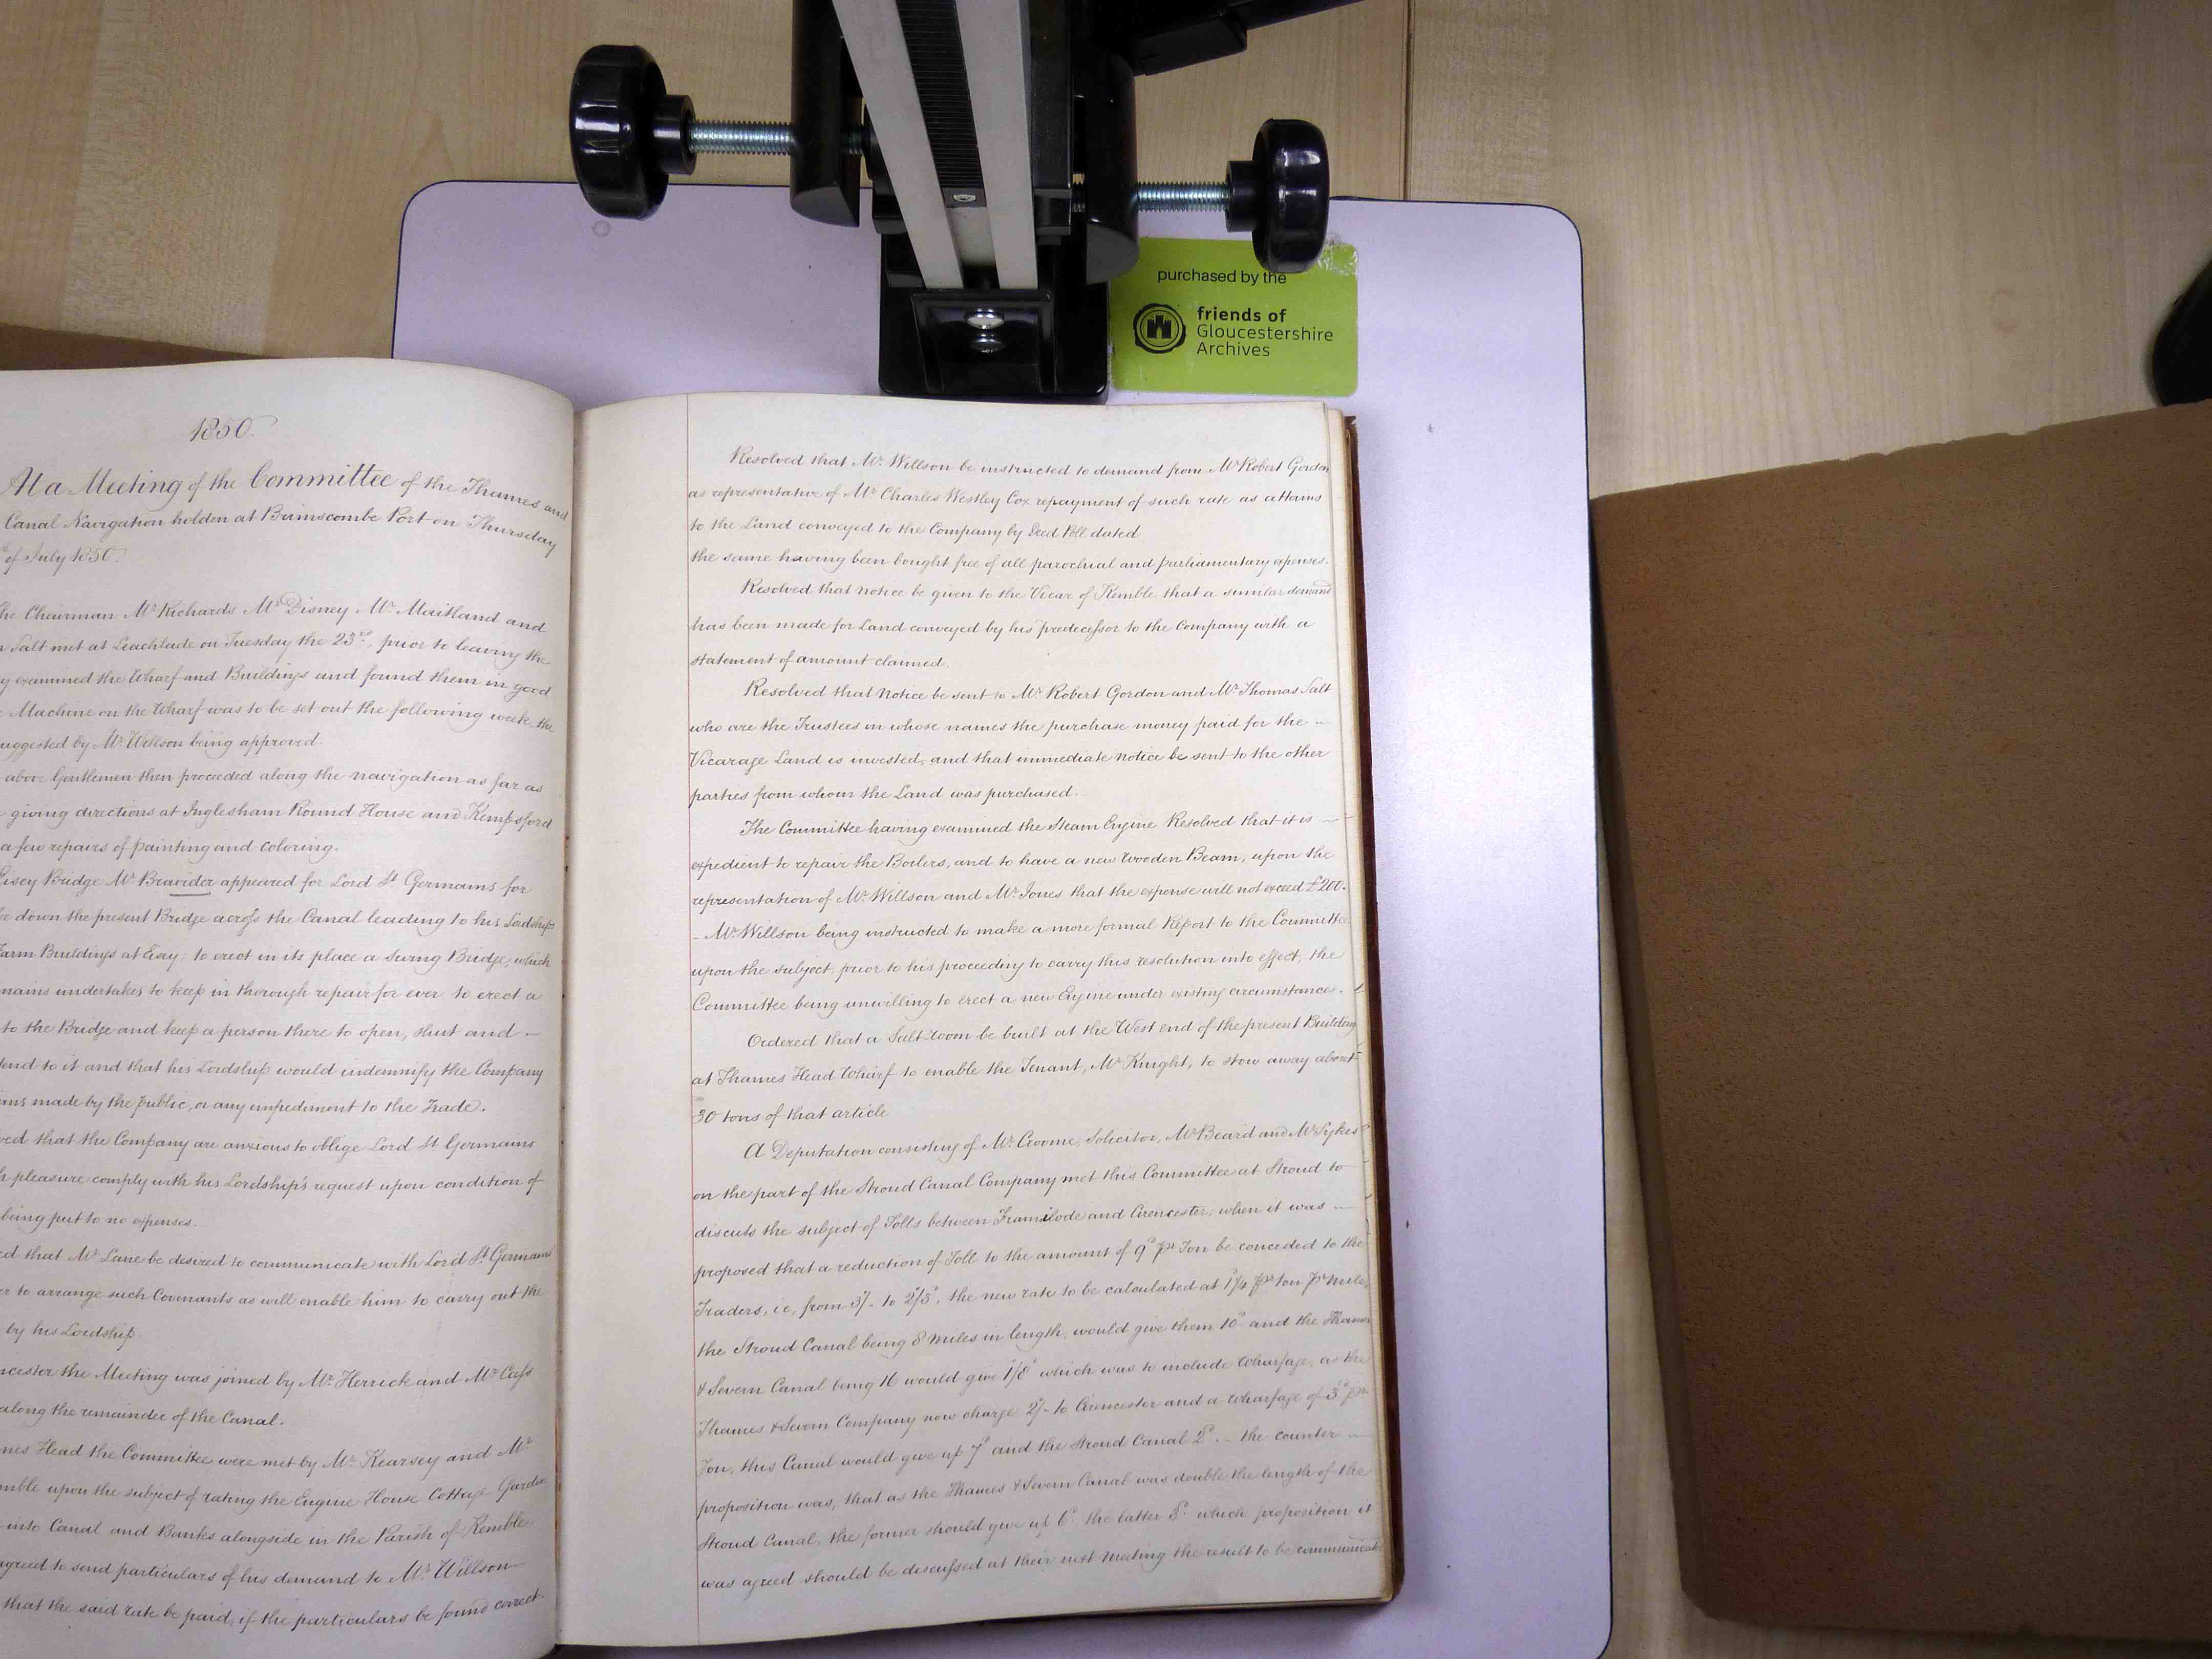 purchased by the
friends of
Gloucestershire
Archives
1850.
At a Meeting of the Committee of the Thames and
Canal Navigation holden at Brimscombe Port on Thursday
of July 1850.
he Chairman Mr. Richards Mr. Disney Mr. Maitland and
Salt met at Leachlade on Tuesday the 23rd, prior to leaving the
y examined the Wharf and Buildings and found them in good
Machine on the Wharf was to be set out the following week, the
uggested by Mr. Willson being approved.
above Gentlemen then proceeded along the navigation as far as
giving directions at Inglesham Round House and Kempsford
a few repairs of painting and coloring.
Eisey Bridge Mr. Bravider appeared for Lord St Germains for
down the present Bridge across the Canal leading to his Lordships
arm Buildings at Eisey; to erect in its place a Swing Bridge, which
mains undertakes to keep in thorough repair for ever, to erect a
to the Bridge and keep a person there to open, shut and
end to it and that his Lordship would indemnify the Company
ims made by the public, or any impediment to the Trade.
ved that the Company are anxious to oblige Lord St Germains
h pleasure comply with his Lordship's request upon condition of
being put to no expenses.
ed that Mr. Lane be desired to communicate with Lord St Germains
er to arrange such Covenants as will enable him to carry out the
by his Lordship.
ncester the Meeting was joined by Mr. Herrick and Mr. Cass
along the remainder of the Canal.
mes Head the Committee were met by Mr. Kearsey and Mr.
mble upon the subject of rating the Engine House Cottage Garden
into Canal and Banks alongside in the Parish of Kemble.
agreed to send particulars of his demand to Mr. Willson
that the said rate be paid, if the particulars be found correct.
Resolved that Mr. Willson be instructed to demand from Mr. Robert Gordon
as representative of Mr. Charles Westley Cox repayment of such rate as attains
to the Land conveyed to the Company by Deed Poll dated
the same having been bought free of all parochial and parliamentary expenses.
Resolved that notice be given to the Vicar of Kemble that a similar demand
has been made for Land conveyed by his predecessor to the Company with a
statement of amount claimed.
Resolved that Notice be sent to Mr. Robert Gordon and Mr. Thomas Salt
who are the Trustees in whose names the purchase money paid for the
Vicarage Land is invested, and that immediate notice be sent to the other
parties from whom the Land was purchased.
The Committee having examined the Steam Engine Resolved that it is
expedient to repair the Boilers, and to have a new Wooden Beam, upon the
representation of Mr. Willson and Mr. Jones that the expense will not exceed £200.
- Mr. Willson being instructed to make a more formal Report to the Committee
upon the subject, prior to his proceeding to carry this resolution into effect, the
Committee being unwilling to erect a new Engine under existing circumstances.
Ordered that a Salt Room be built at the West end of the present Building
at Thames Head Wharf to enable the Tenant, Mr. Knight, to stow away about
30 tons of that article
A Deputation consisting of Mr. Croome, Solicitor, Mr. Beard and Mr. Sykes
on the part of the Stroud Canal Company met this Committee at Stroud to
discuss the subject of Tolls between Framilode and Cirencester, when it was
proposed that a reduction of Toll to the amount of 9d pr Ton be conceded to the
Traders, ie, from 3/- to 2/3d, the new rate to be calculated at 1¼d pr ton pr mile,
the Stroud Canal being 8 miles in length, would give them 10d and the Thames
& Severn Canal being 16 would give 1/8d which was to include Wharfage, as the
Thames & Severn Company now charge 2/- to Cirencester and a Wharfage of 3d pr
Ton, this Canal would give up 7d and the Stroud Canal 2d. - the counter
proposition was, that as the Thames & Severn Canal was double the length of the
Stroud Canal, the former should give up 6d. the latter 3d. which proposition it
was agreed should be discussed at their next Meeting the result to be communicat